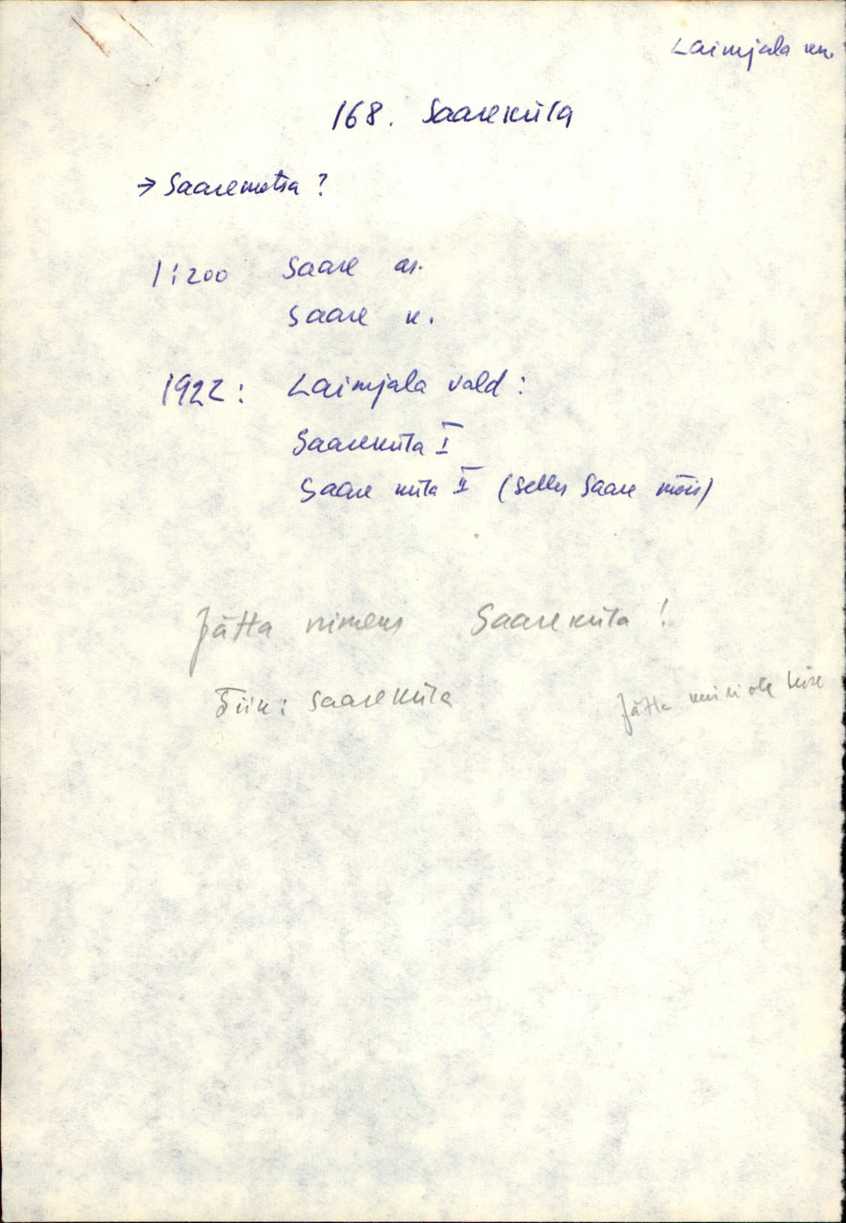 Laimjala kn.
168. Saareküla
→ Saaremetsa ?
1:200 Saare as.
Saare k.
1922: Laimjala vald:
Saareküla I
Saare küla II (selles Saare mõis)
Jätta nimeks Saareküla !
Tiik: Saareküla
Jätta